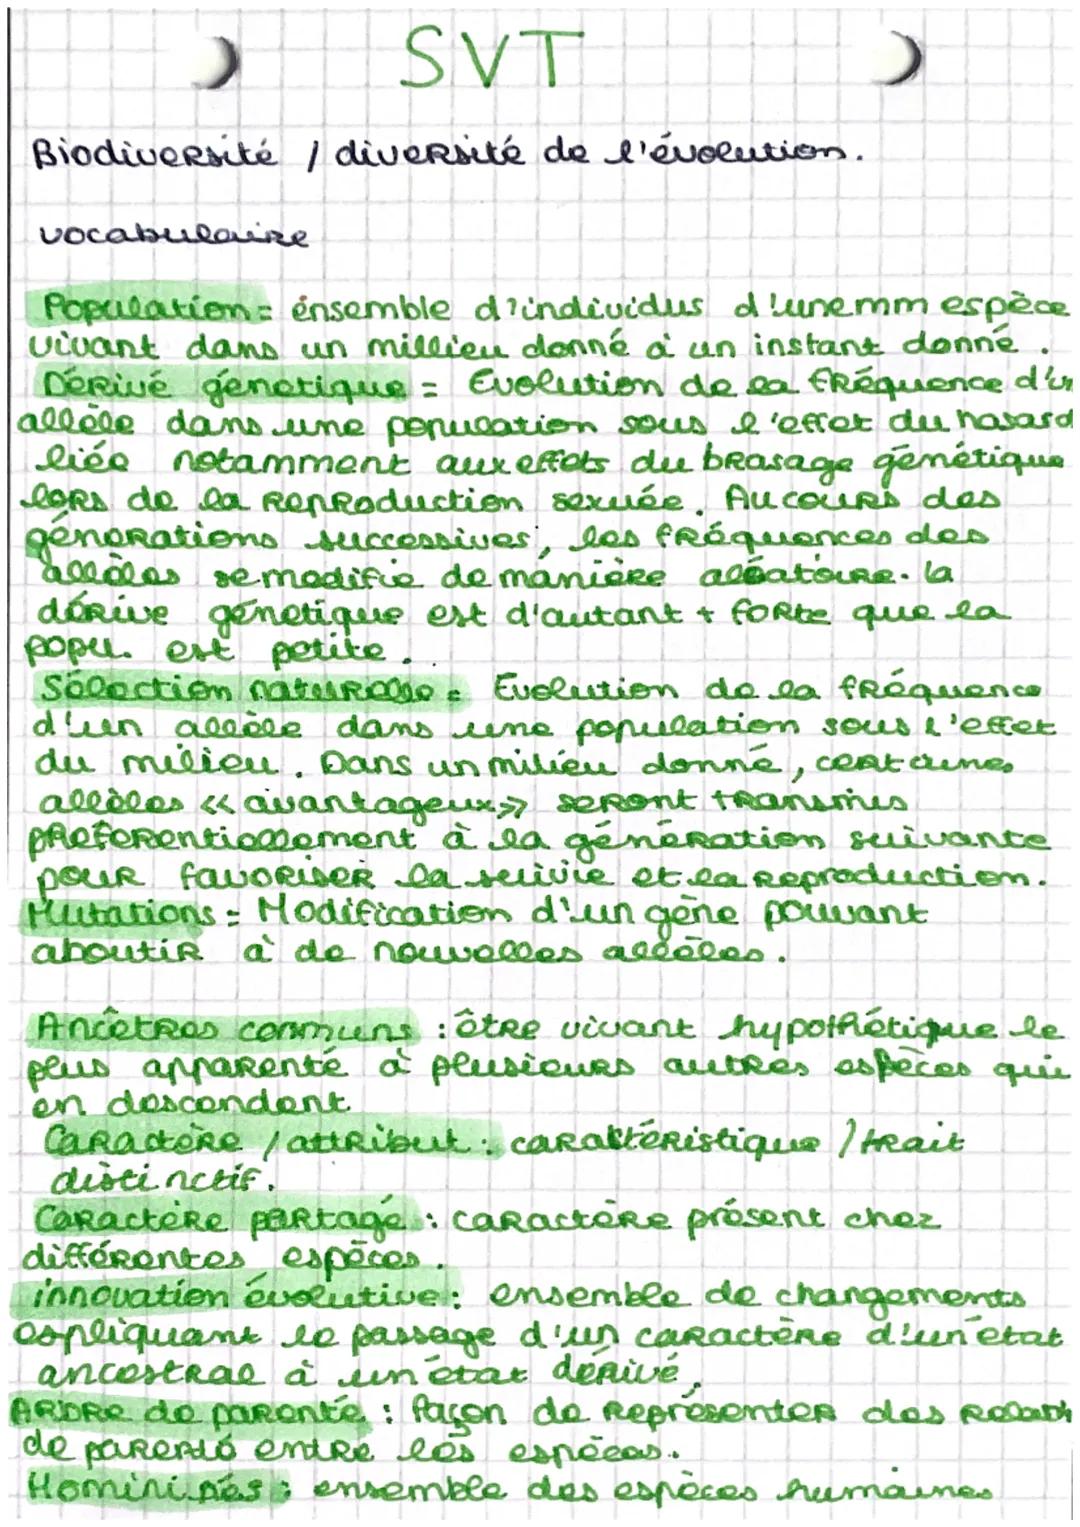 SVT
Biodiversité / diversité de l'évolution.
vocabulaire
Population = énsemble d'individus d'une mm espèce
vivant dans un millieu donné à un instant donné.
Dérivé génetique = Evolution de la fréquence d'un
allèle dans une population sous l'effet du hasard
liée notamment aux effets du brasage génétique
lors de la reproduction sexuée. Au cours des
générations successives, les fréquences des
allèles se modifie de manière aléatoire. la
dérive génetique est d'autant + forte que la
popu. est petite.
Sélection naturelle = Evolution de la fréquence
d'un allèle dans une population sous l'effet
du milieu. Dans un milieu donné, certaines
allèles << avantageux >> seront transmis
préférentiellement à la génération suivante
pour favoriser la suivie et la reproduction.
Mutations = Modification d'un gène pouvant
aboutir à de nouvelles allèles.
Ancêtres communs : être vivant hypothétique le
plus apparenté à plusieurs autres espèces qui
en descendent
Caractère / attribut : caractéristique / trait
distinctif.
Caractère partagé : caractère présent chez
différentes espèces.
innovation évolutive : ensemble de changements
expliquant le passage d'un caractère d'un état
ancestral à un état dérivé.
Arbre de parenté : façon de représenter des relati
de parenté entre les espèces.
Homininés : ensemble des espèces humaines